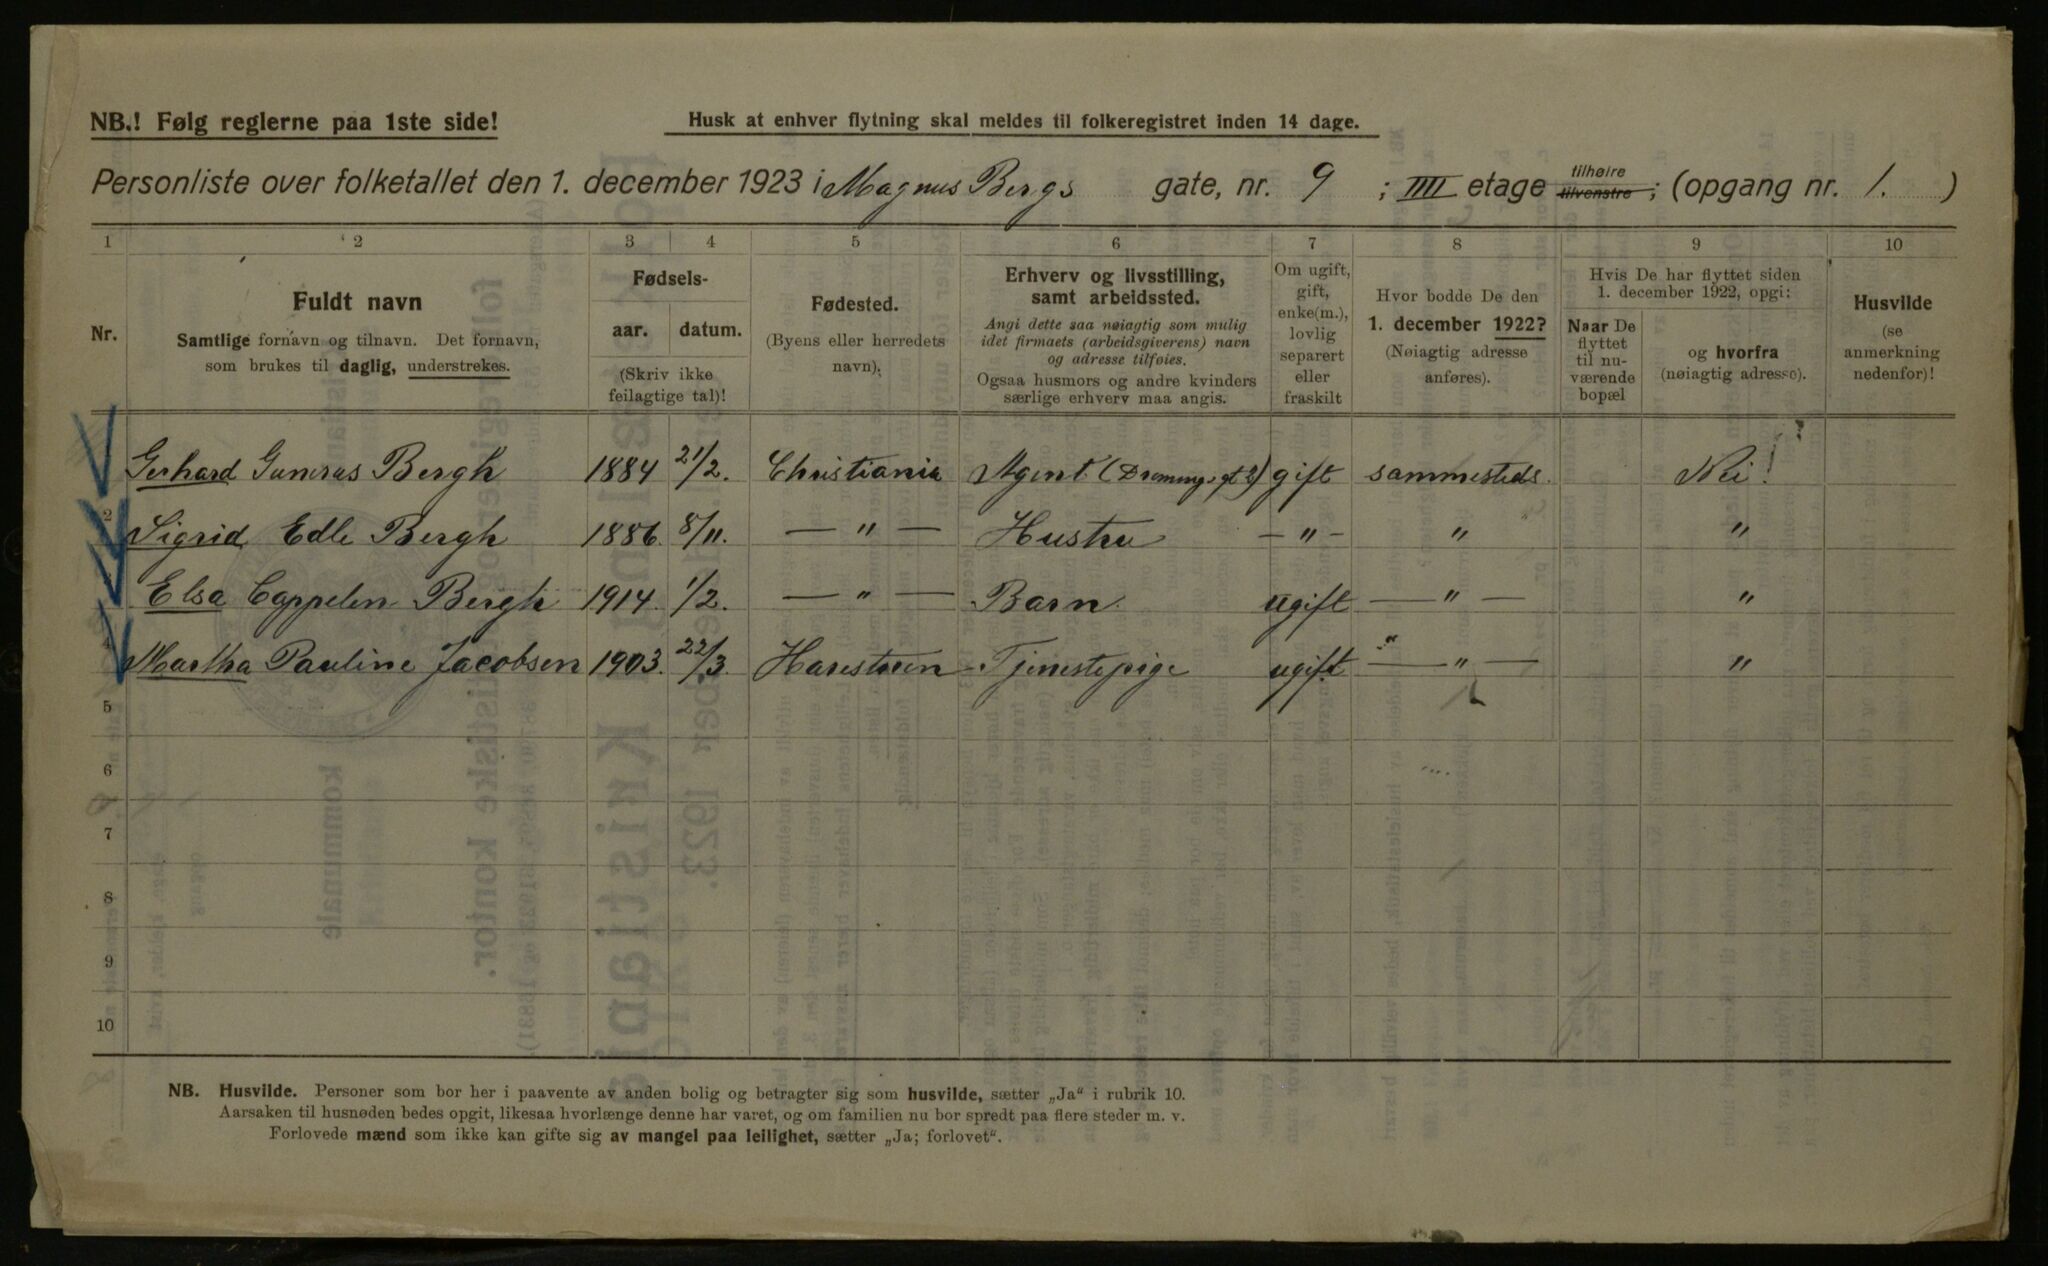 NB.! Følg reglerne paa 1ste side!
Husk at enhver flytning skal meldes til folkeregistret inden 14 dage.
Personliste over folketallet den 1. december 1923 i Magnus Bergs gate, nr. 9 ; IIII etage tilhøire tilvenstre ; (opgang nr. 1. )
1 2 3 4 5 6 7 8 9 10
Nr.
Fuldt navn
Samtlige fornavn og tilnavn. Det fornavn,
som brukes til daglig, understrekes.
Fødsels-
aar. datum.
(Skriv ikke
feilagtige tal)!
Fødested.
(Byens eller herredets
navn).
Erhverv og livsstilling,
samt arbeidssted.
Angi dette saa nøiagtig som mulig
idet firmaets (arbeidsgiverens) navn
og adresse tilføies.
Ogsaa husmors og andre kvinders
særlige erhverv maa angis.
Om ugift,
gift,
enke(m.),
lovlig
separert
eller
fraskilt
Hvor bodde De den
1. december 1922?
(Nøiagtig adresse
anføres).
Hvis De har flyttet siden
1. december 1922, opgi:
Naar De
flyttet
til nu-
værende
bopæl
og hvorfra
(nøiagtig adresse).
Husvilde
(se
anmerkning
nedenfor)!
Gerhard Bergh 1884 21/2. Christiania Agent gift sammesteds. Nei!
2 Sigrid Edle Bergh 1886. 8/11. — " — Hustru — " — " "
Elsa Cappelen Bergh 1914. 1/2. — " — Barn. ugift — " — "
4 Martha Pauline Jacobsen 1903. 22/3. Tjenestepige ugift — " — "
5
6
7
8
9
10
NB. Husvilde. Personer som bor her i paavente av anden bolig og betragter sig som husvilde, sætter „Ja“ i rubrik 10.
Aarsaken til husnøden bedes opgit, likesaa hvorlænge denne har varet, og om familien nu bor spredt paa flere steder m. v.
Forlovede mænd som ikke kan gifte sig av mangel paa leilighet, sætter „Ja; forlovet“.